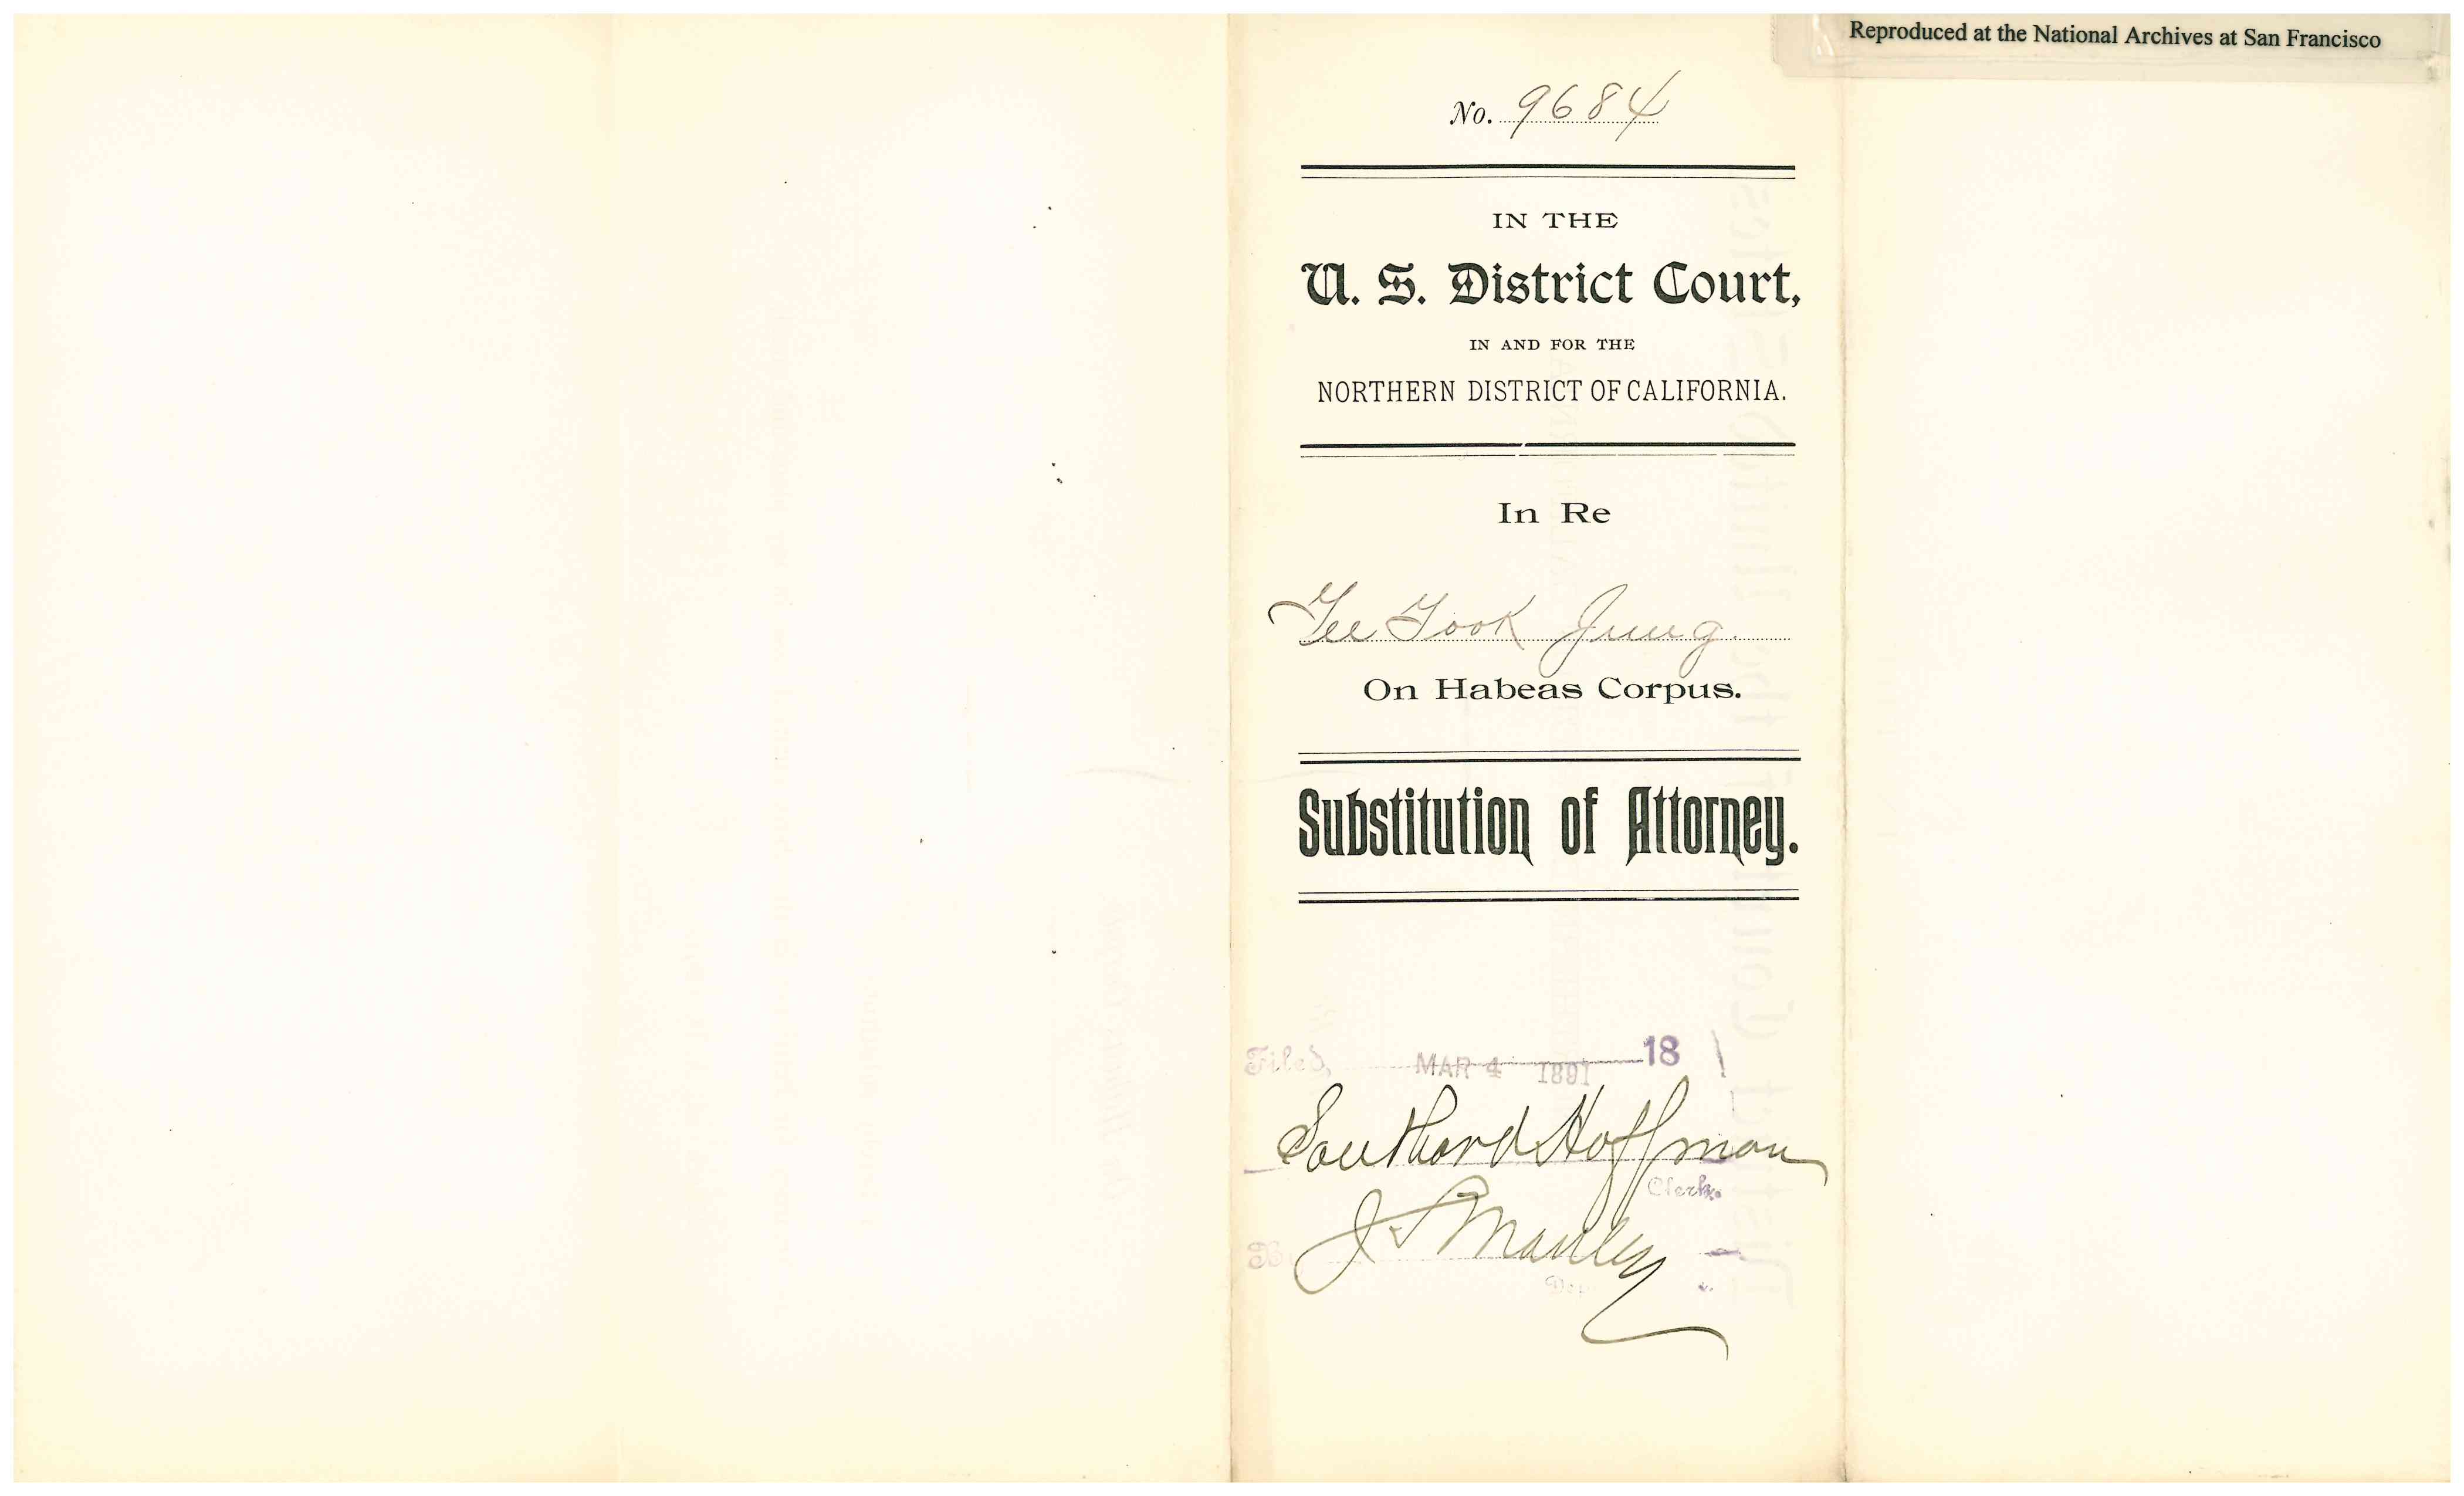 Reproduced at the National Archives at San Francisco
No. 9684
IN THE
U. S. District Court,
IN AND FOR THE
NORTHERN DISTRICT OF CALIFORNIA.
In Re
Gee Fook Jung.
On Habeas Corpus.
Substitution of Attorney.
Filed, MAR 4 1891 18
Southard Hoffman
Clerk.
J S Manley